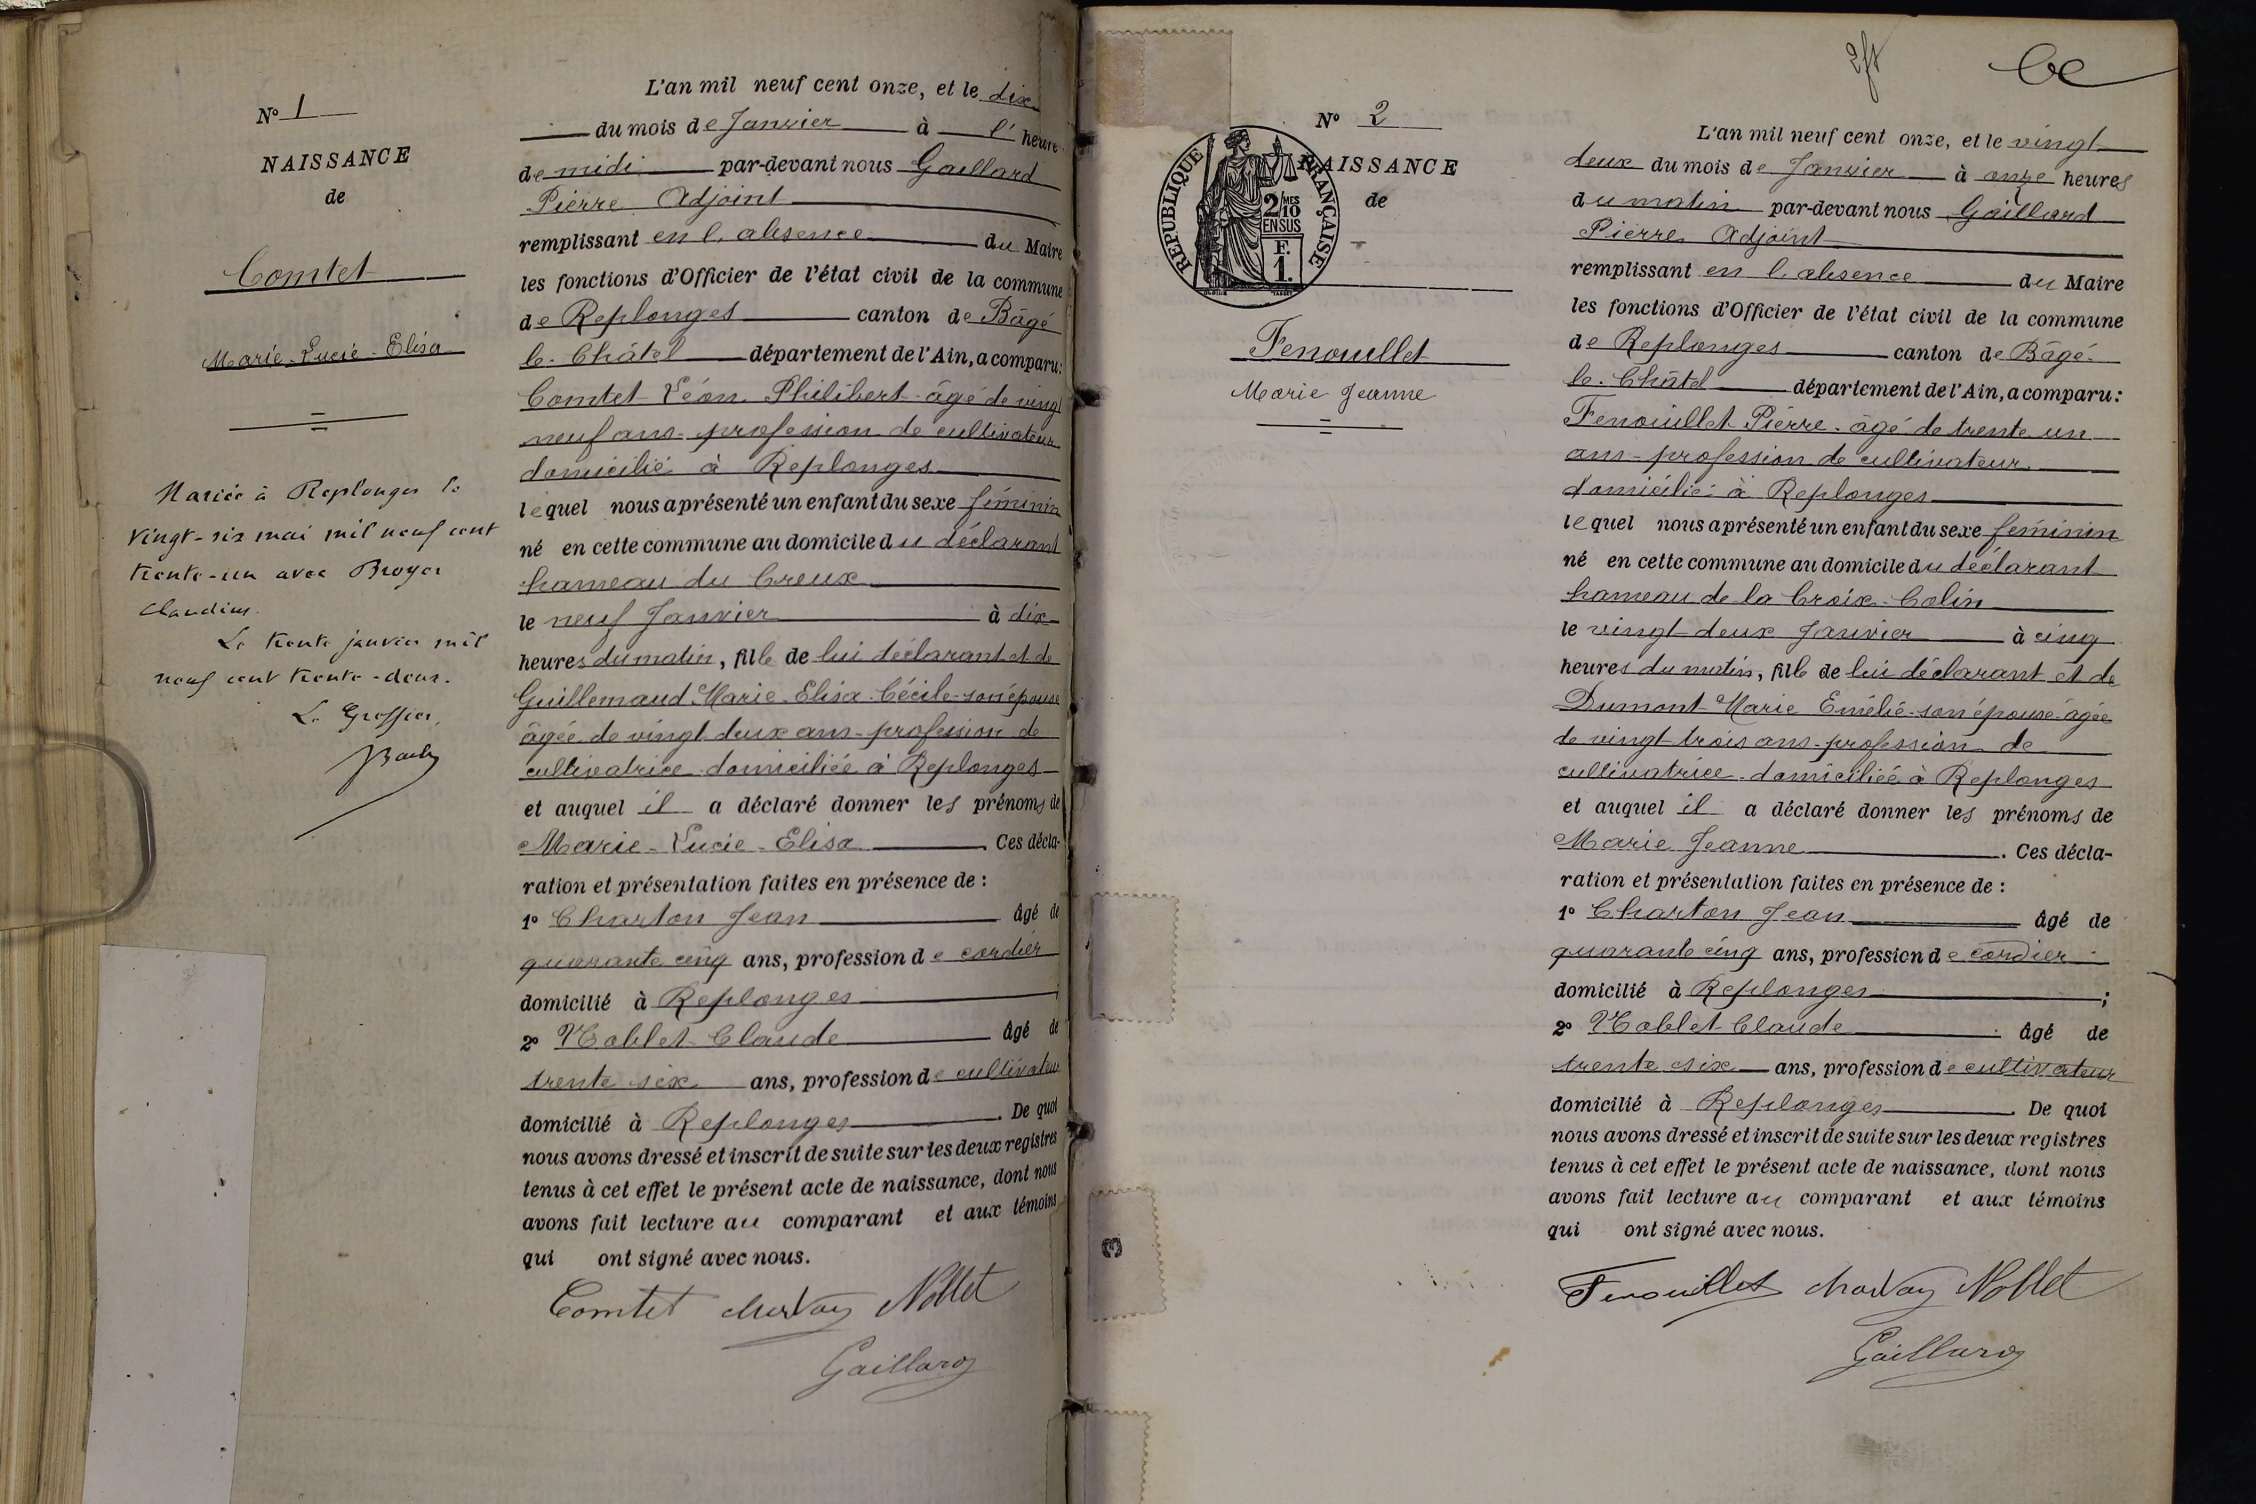 N° 1
NAISSANCE
de
Comtet
Marie-Lucie-Elisa
Mariée à Replonges le
vingt-six mai mil neuf cent
trente-un avec Broyer
Claudius.
Le trente janvier mil
neuf cent trente-deux.
Le Greffier,
L'an mil neuf cent onze, et le dix
du mois de Janvier à l' heure
de midi par-devant nous Gaillard
Pierre Adjoint
remplissant en l'absence du Maire
les fonctions d'Officier de l'état civil de la commune
de Replonges canton de Bâgé
le-Châtel département de l'Ain, a comparu:
Comtet Léon Philibert âgé de vingt
neuf ans profession de cultivateur
domicilié à Replonges
lequel nous a présenté un enfant du sexe féminin
né en cette commune au domicile du déclarant
hameau du Creux
le neuf Janvier à dix
heures du matin, fille de lui déclarant et de
Guillemaud Marie-Elisa-Cécile son épouse
âgée de vingt deux ans-profession de
cultivatrice domiciliée à Replonges
et auquel il a déclaré donner les prénoms de
Marie-Lucie-Elisa. Ces décla-
ration et présentation faites en présence de :
1° Charton Jean âgé de
quarante cinq ans, profession de cordier
domicilié à Replonges ;
2° Noblet Claude âgé de
trente six ans, profession de cultivateur
domicilié à Replonges. De quoi
nous avons dressé et inscrit de suite sur les deux registres
tenus à cet effet le présent acte de naissance, dont nous
avons fait lecture au comparant et aux témoins
qui ont signé avec nous.
Comtet Noblet
Gaillard
N° 2
NAISSANCE
de
RÉPUBLIQUE FRANÇAISE
2/10 MES
EN SUS
F.
1.
Fenouillet
Marie Jeanne
L'an mil neuf cent onze, et le vingt
deux du mois de Janvier à onze heures
du matin par-devant nous Gaillard
Pierre Adjoint
remplissant en l'absence du Maire
les fonctions d'Officier de l'état civil de la commune
de Replonges canton de Bâgé-
le-Châtel département de l'Ain, a comparu:
Fenouillet Pierre-âgé de trente un
ans-profession de cultivateur
domicilié à Replonges
lequel nous a présenté un enfant du sexe féminin
né en cette commune au domicile du déclarant
hameau de la Croix-Colin
le vingt-deux Janvier à cinq
heures du matin, fille de lui déclarant et de
Dumont Marie Emélie son épouse âgée
de vingt trois ans-profession de
cultivatrice-domiciliée à Replonges
et auquel il a déclaré donner les prénoms de
Marie Jeanne. Ces décla-
ration et présentation faites en présence de :
1° Charton Jean âgé de
quarante cinq ans, profession de cordier
domicilié à Replonges ;
2° Noblet Claude âgé de
trente six ans, profession de cultivateur
domicilié à Replonges. De quoi
nous avons dressé et inscrit de suite sur les deux registres
tenus à cet effet le présent acte de naissance, dont nous
avons fait lecture au comparant et aux témoins
qui ont signé avec nous.
Fenouillet Noblet
Gaillard